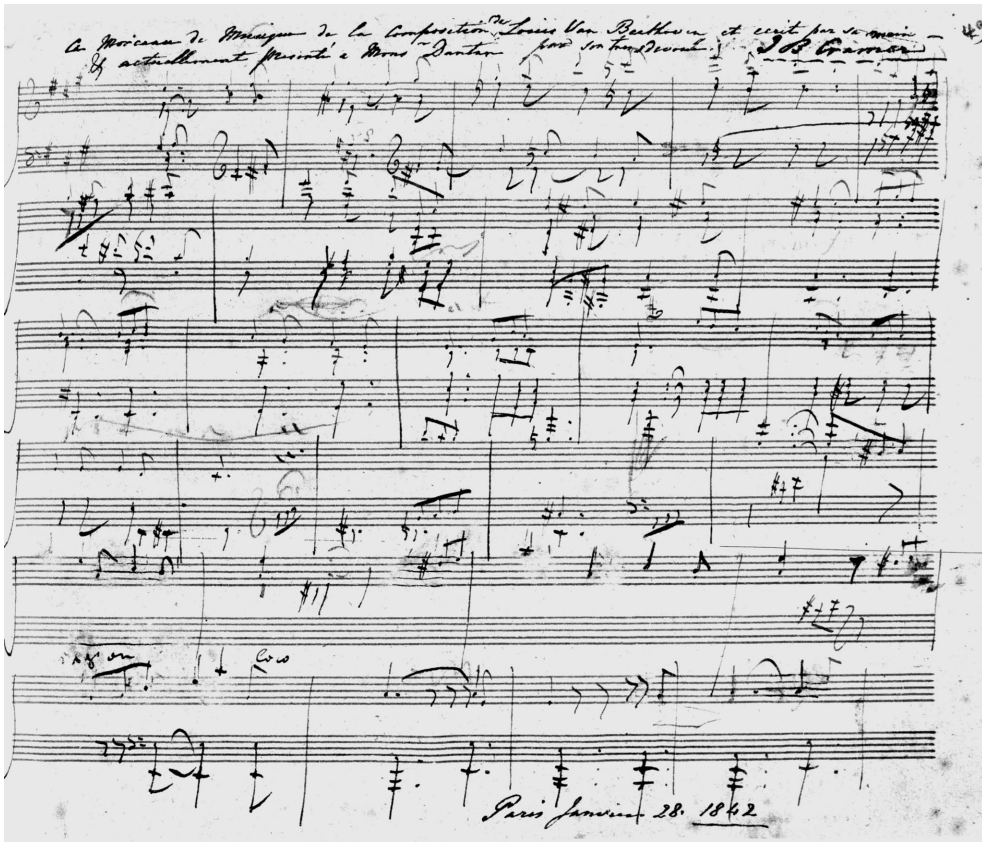 Ce Morceau de Musique de la Composition de Louis Van Beethoven et ecrit par sa main
& actuellement presenté a Monsr Dantan par son tres devoué J B Cramer
loco
Paris Janvier 28. 1842